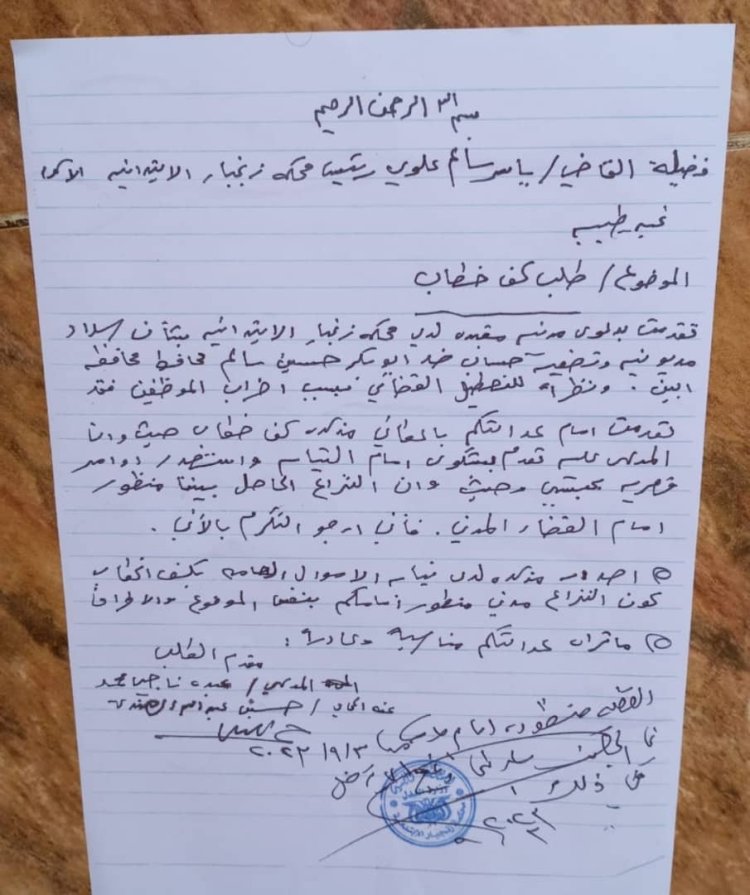 بسم الله الرحمن الرحيم
فضيلة القاضي/ ياسر سالم علوي رئيس محكمة زنجبار الابتدائيه الاكرم
تحيه طيبه
الموضوع/ طلب كف خطاب
تقدمت بدعوى مدنيه مقيده لدى محكمه زنجبار الابتدائيه بشأن سداد
مديونيه وتصفية حساب ضد ابوبكر حسين سالم محافظ محافظه
ابين. ونظراً للتعطيل القضائي بسبب اضراب الموظفين فقد
تقدمت امام عدالتكم باعطائي مذكره كف خطاب حيث وان
المدعى عليه تقدم بشكوى امام النيابه واستصدر اوامر
قهريه بحبسي وحيث وان النزاع الحاصل بيننا منظور
امام القضاء المدني. فأني ارجو التكرم بالأتي.
اصدار مذكره لدى نيابه الاموال العامه بكف الخطاب
كون النزاع مدني منظور أمامكم بنفس الموضوع والاطراف
ماتراه عدالتكم مناسباً وعادلاً:
مقدم الطلب
المدعي/ عبده ناجي محمد
عنه المحامي/ حسين عبدالله
٢٠٢٣/٩/٣
القضيه منظوره امام
على ذلك